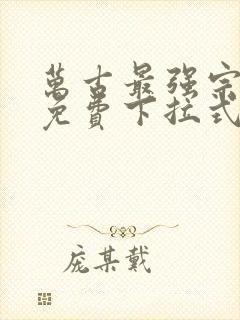 萬古最强宗
免費下拉式
庞某戴